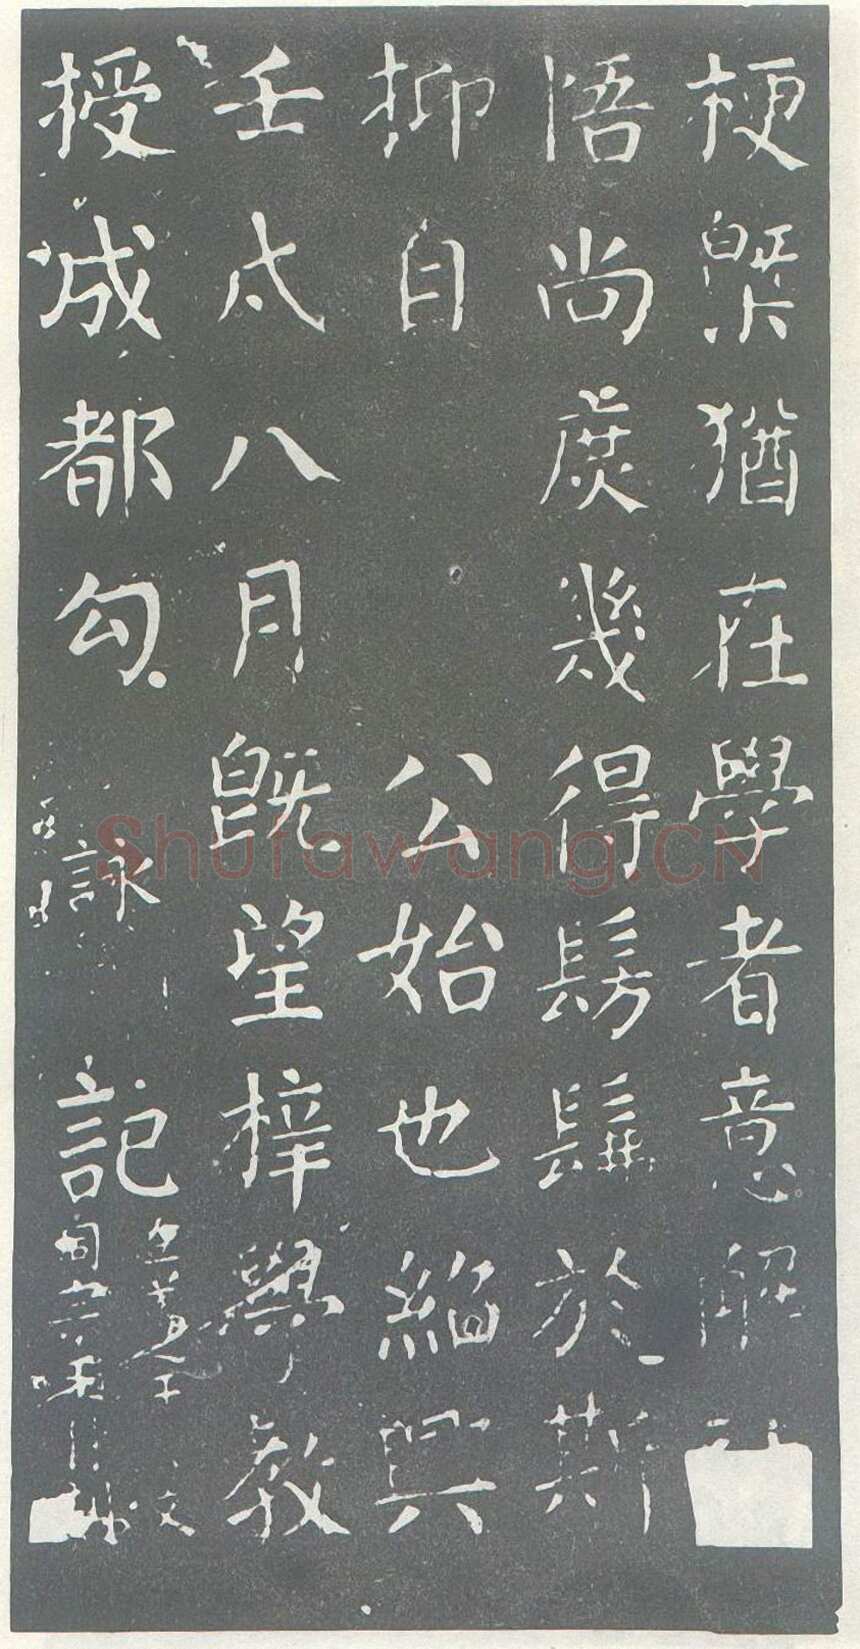 梗槩猶在學者意解
悟尚庻幾得髣髴於斯
抑自公始也紹興
壬戌八月既望梓學教
授成都勾詠記
Shufawang.CN